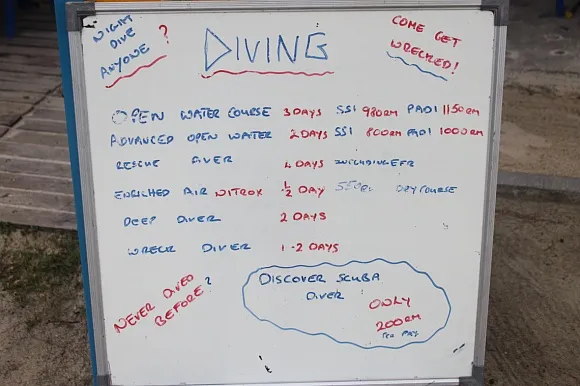 NIGHT
DIVE
ANYONE ?
DIVING
COME GET
WRECKED!
OPEN WATER COURSE 3 DAYS SSI 980RM PADI 1150RM
ADVANCED OPEN WATER 2 DAYS SSI 800RM PADI 1000RM
RESCUE DIVER 4 DAYS INCLUDING EFR
ENRICHED AIR NITROX ½ DAY DRY COURSE
DEEP DIVER 2 DAYS
WRECK DIVER 1-2 DAYS
NEVER DIVED
BEFORE?
DISCOVER SCUBA
DIVER
ONLY
200RM